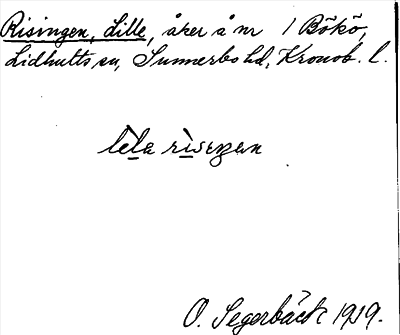 Risingen, Lille, åker å nr 1 Bökö,
Lidhults sn, Sunnerbo hd, Kronob. l.
lịla rịseŋan
O. Segerbäck 1919.